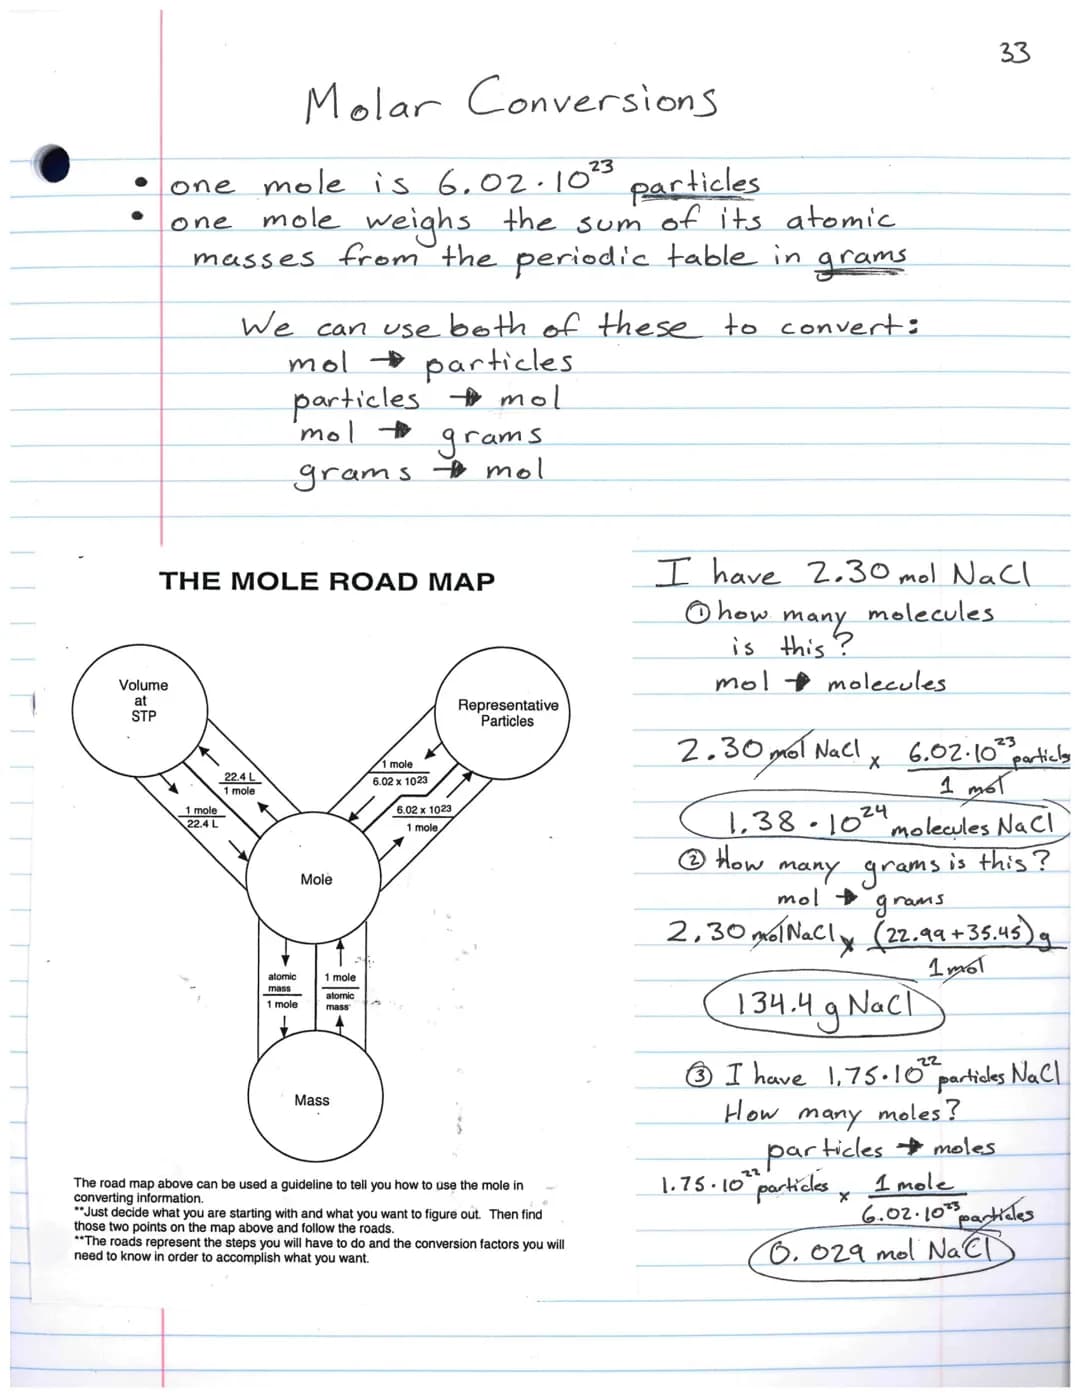 33
Molar Conversions
• one mole is 6.02·10²³ particles
• one mole weighs the sum of its atomic
masses from the periodic table in grams
We can use both of these to convert:
mol → particles
particles → mol
mol → grams
grams → mol
THE MOLE ROAD MAP
Volume
at
STP
Representative
Particles
22.4 L
1 mole
1 mole
22.4 L
1 mole
6.02 x 1023
6.02 x 1023
1 mole
Mole
atomic
mass
1 mole
1 mole
atomic
mass
Mass
The road map above can be used a guideline to tell you how to use the mole in
converting information.
**Just decide what you are starting with and what you want to figure out. Then find
those two points on the map above and follow the roads.
**The roads represent the steps you will have to do and the conversion factors you will
need to know in order to accomplish what you want.
I have 2.30 mol NaCl
① how many molecules
is this?
mol → molecules
2.30 mol NaCl x 6.02·10²³ particls
1 mol
1.38·10²⁴ molecules NaCl
② How many grams is this?
mol → grams
2.30 mol NaCl x (22.99+35.45)g
1 mol
134.4 g NaCl
③ I have 1.75·10²² particles NaCl
How many moles?
particles → moles
1.75·10²² particles x 1 mole
6.02·10²³ particles
0.029 mol NaCl